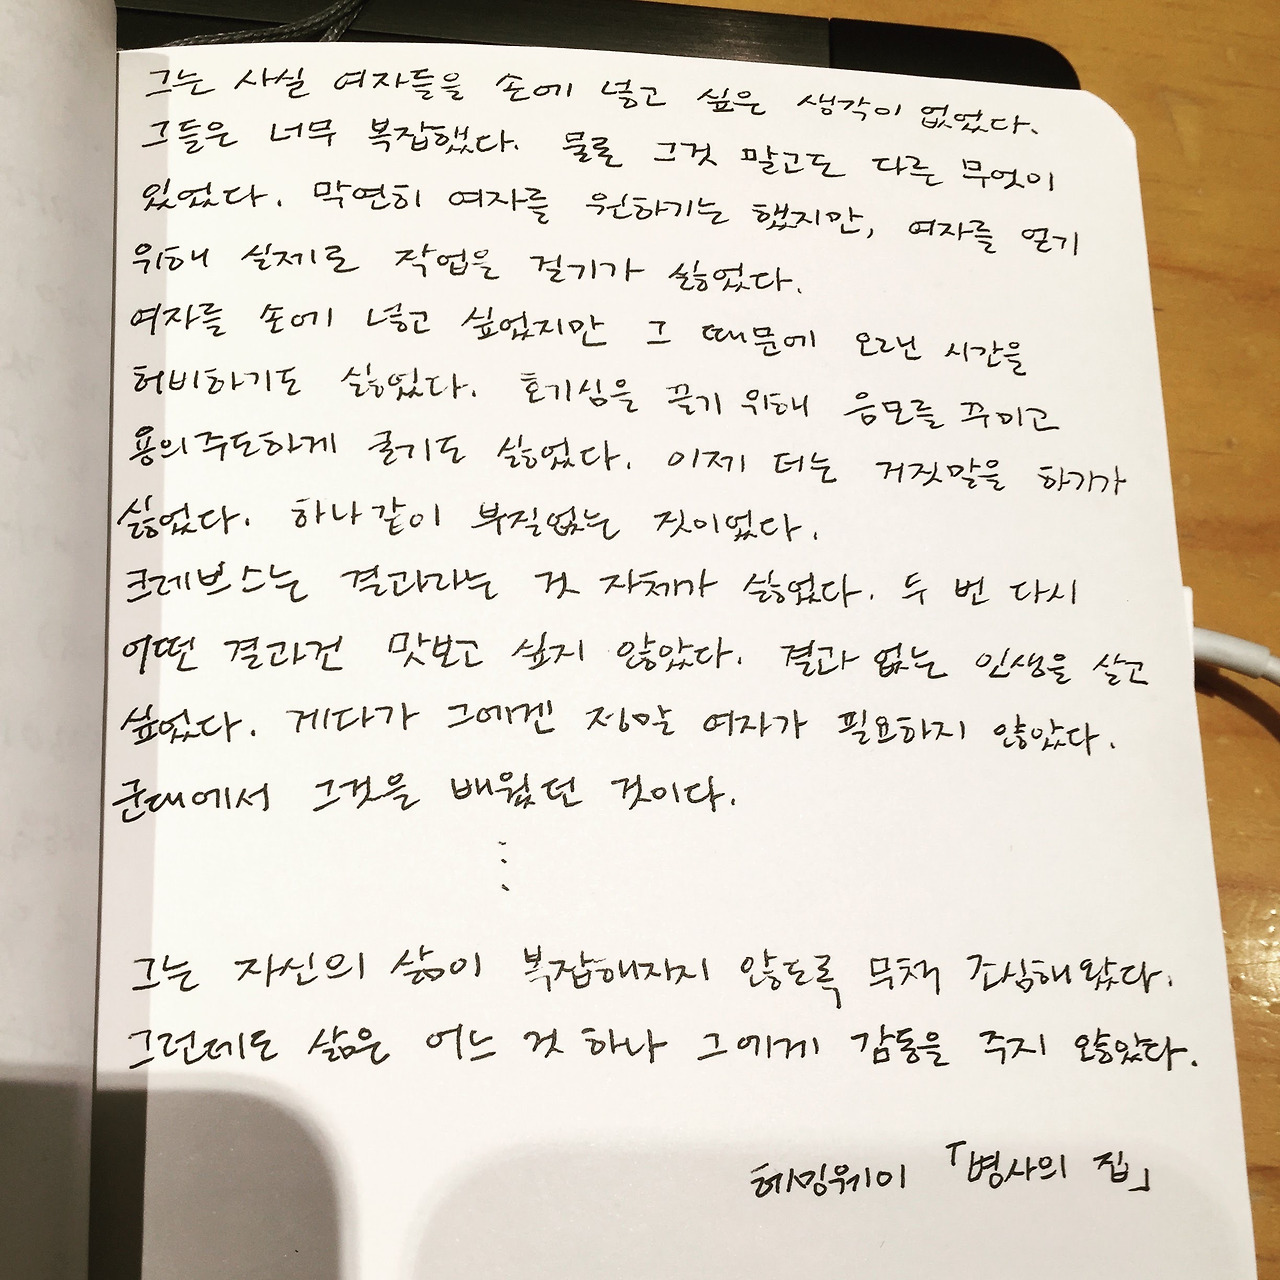 그는 사실 여자들을 손에 넣고 싶은 생각이 없었다.
그들은 너무 복잡했다. 물론 그것 말고도 다른 무엇이
있었다. 막연히 여자를 원하기는 했지만, 여자를 얻기
위해 실제로 작업을 걸기가 싫었다.
여자를 손에 넣고 싶었지만 그 때문에 오랜 시간을
허비하기도 싫었다. 호기심을 끌기 위해 음모를 꾸미고
용의주도하게 굴기도 싫었다. 이제 더는 거짓말을 하기가
싫었다. 하나같이 부질없는 짓이었다.
크레브스는 결과라는 것 자체가 싫었다. 두 번 다시
어떤 결과건 맛보고 싶지 않았다. 결과 없는 인생을 살고
싶었다. 게다가 그에겐 정말 여자가 필요하지 않았다.
군대에서 그것을 배웠던 것이다.
⋮
그는 자신의 삶이 복잡해지지 않도록 무척 조심해왔다.
그런데도 삶은 어느 것 하나 그에게 감동을 주지 않았다.
헤밍웨이 「병사의 집」